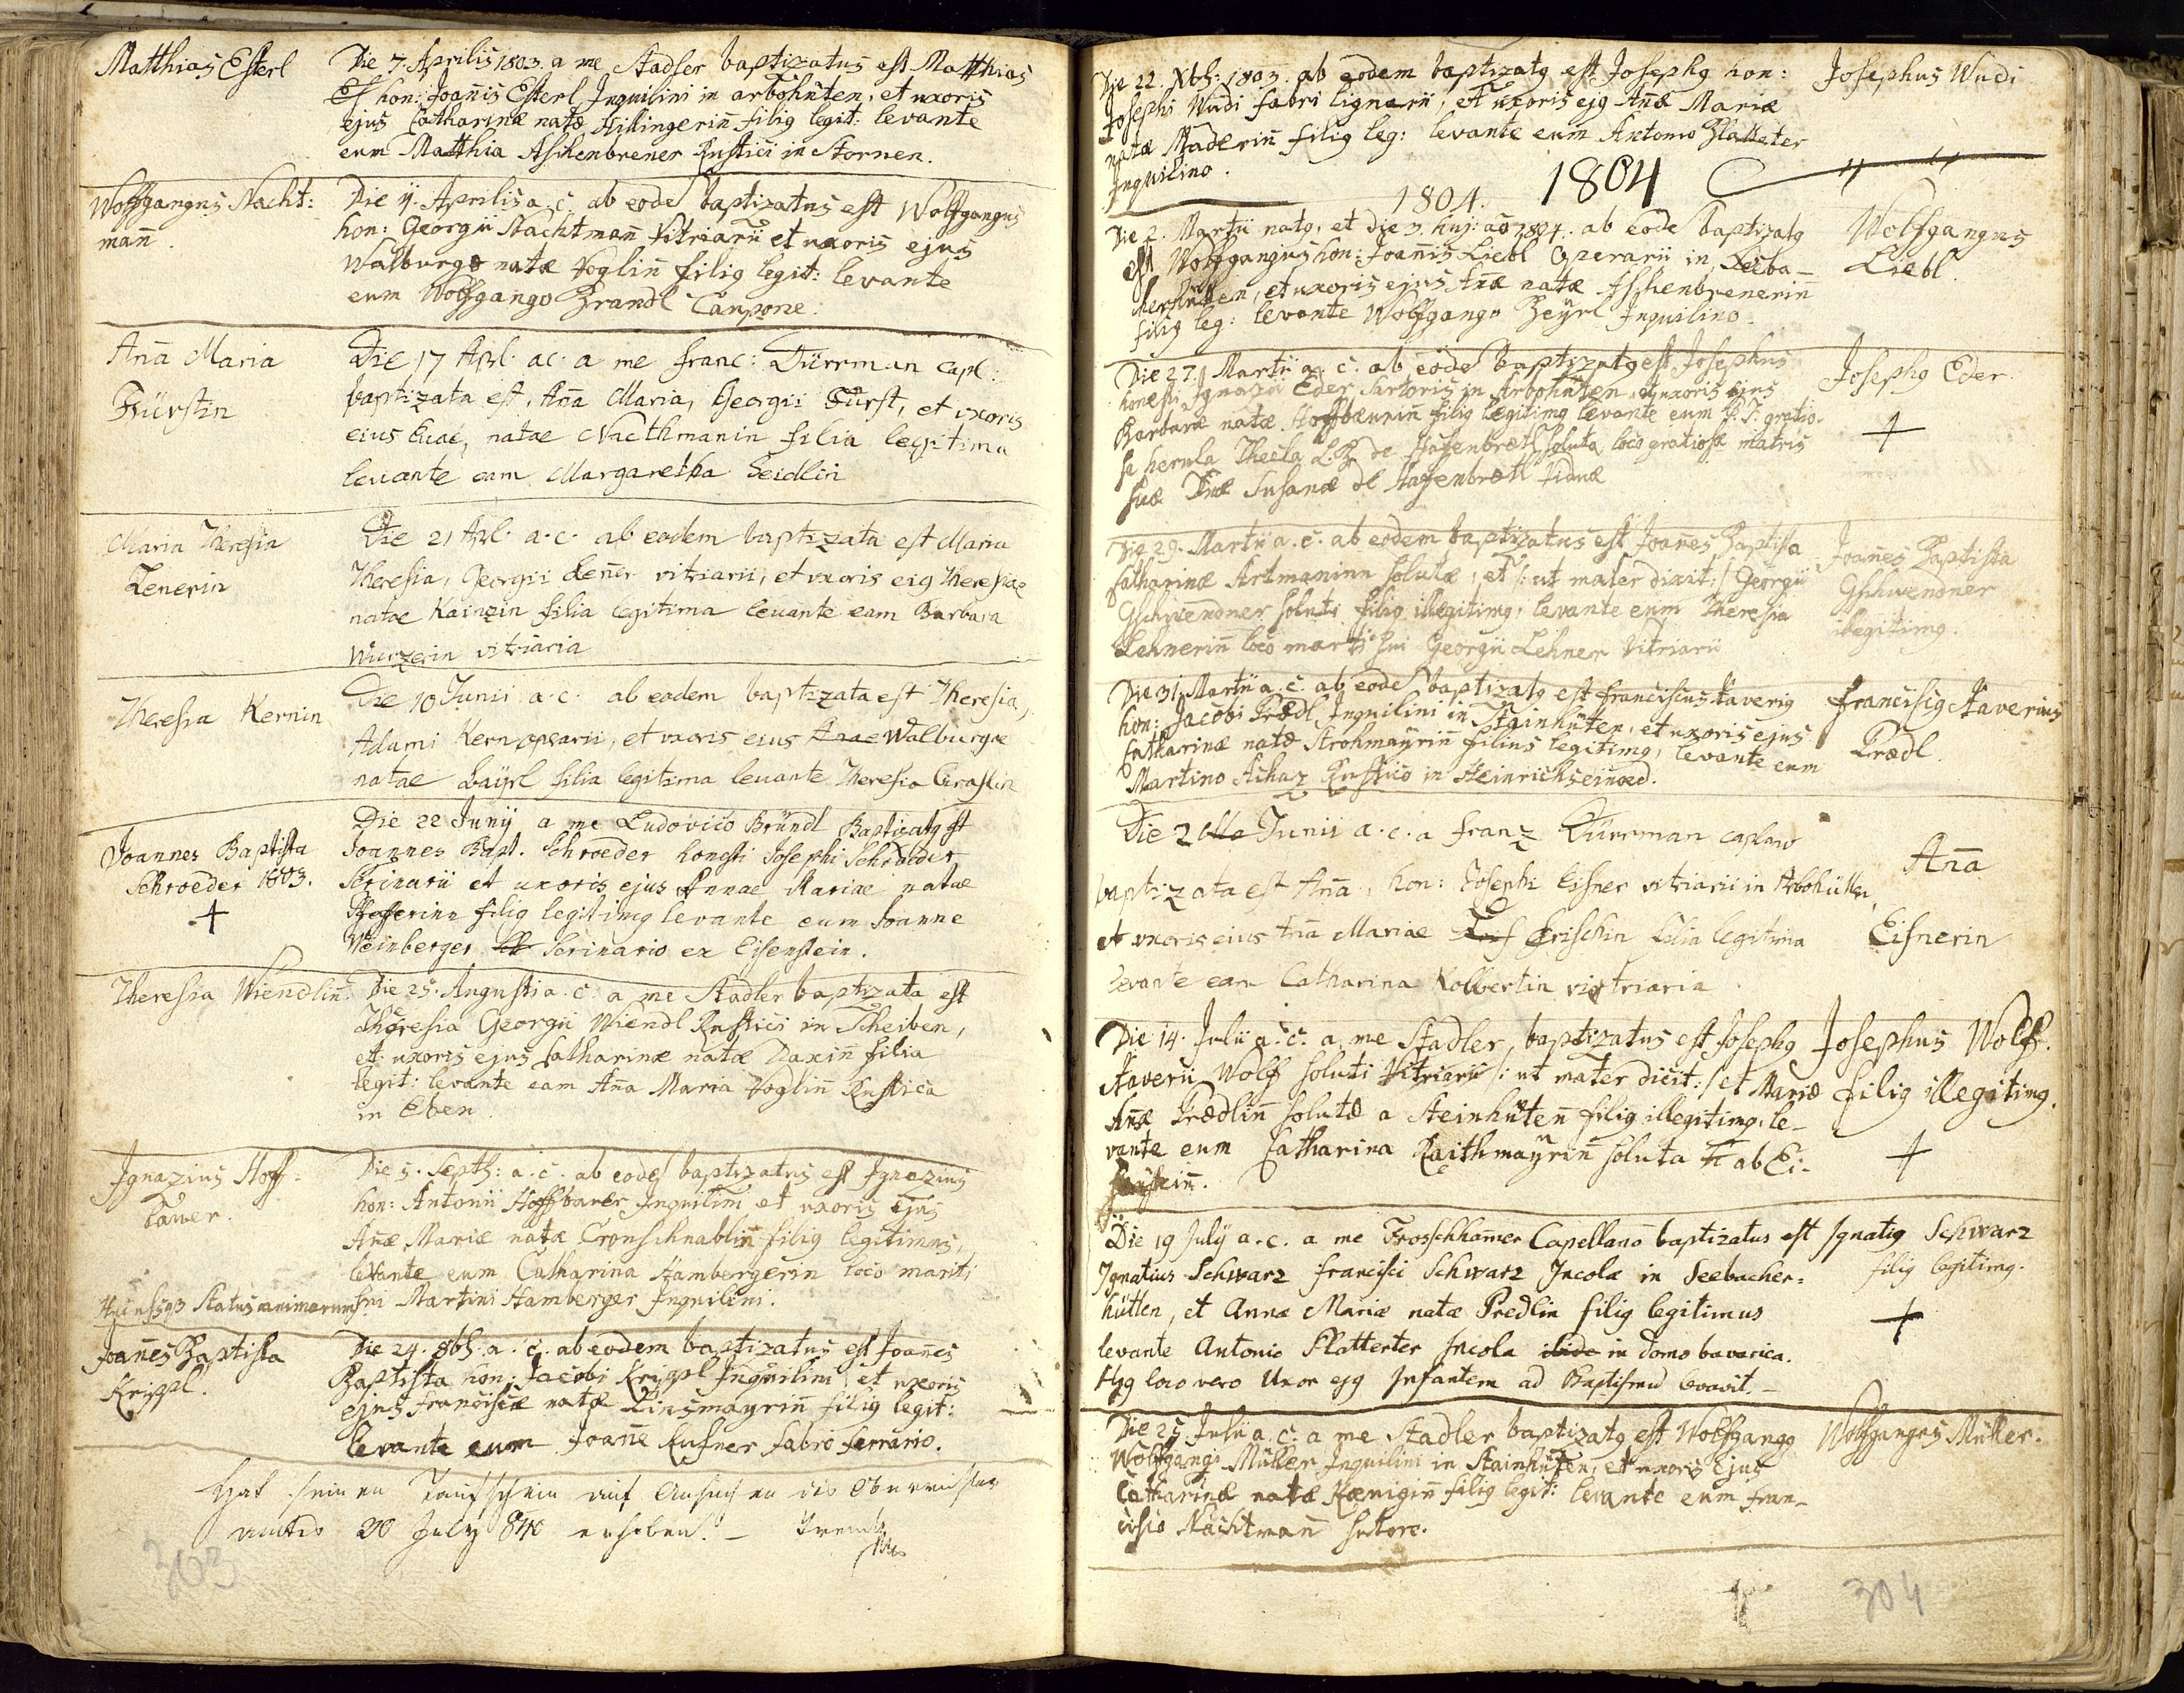 Matthias Esterl
Die 7. Aprilis 1803. a me Stadler baptizatus est Matthias
hon: Joañis Esterl Inquilini in arbohütten, et uxoris
ejus Catharinæ natæ Hillingeriñ filig legit: levante
eum Matthia Aschenbrener Rustici in Stornen.
Wolfgangus Nacht:
mañ.
Die 11. Aprilis a. c. ab eode baptizatus est Wolfgangus
hon: Georgii Nachtmañ Vitriarii et uxoris ejus
Walburgæ natæ Vogliñ filig legit: levante
eum Wolfgango Brandl Caupone.
Aña Maria
Fürstin
Die 17 Apl. ac. a me Franc: Dürrman Capl:
baptizata est, Aña Maria, Georgii Fürst, et uxoris
eius Evae, natae Nacthmanin filia legitima
levante eam Margaretha Seidlin
Maria Theresia
Lenerin
Die 21 Apl. a. c. ab eodem baptizata est Maria
Theresia, Georgii Lener vitriarii, et uxoris eig Theresiae
natae Kainzin filia legitima levante eam Barbara
Wurzerin vitriaria
Theresia Kernin
Die 10 Junii a. c. ab eodem baptizata est Theresia,
Adami Kern operarii, et uxoris eius Anae Walburgae
natae Bayrl filia legitima levante Theresia Graslin
Joannes Baptista
Schroeder 1803.
+
Die 22 Junij a me Ludovico Bründl Baptizatg est
Joannes Bapt. Schroeder honesti Josephi Schroeder
Scrinarii et uxoris ejus Annae Mariae natae
filig legitimg levante eum Joanne
Weinberger Scrinario ex Eisenstein.
Theresia Wiendliñ.
Die 25. Augusti a. c. a me Stadler baptizata est
Theresia Georgii Wiendl Rustici in Scheiben,
et uxoris ejus Catharinæ natæ Daxiñ filia
legit: levante eam Aña Maria Vogliñ Rustica
in Eben.
Ignazius Hoff:
bauer.
Die 5. Septb: a. c. ab eode baptizatus est Ignazius
hon: Antonii Hoffbauer Inquilini et uxoris ejus
Añæ Mariæ natæ Cronschnabliñ filig legitimus,
levante eum Catharina Hambergerin loco mariti
sui Martini Hamberger Inquilini.
Status animarum
Joañes Baptista
Krippl.
Die 24. 8bs. a. c. ab eodem baptizatus est Joañes
Baptista hon: Jacobi Krippl Inquilini, et uxoris
ejus Franciscæ natæ Zinsmayriñ filig legit:
levante eum Joañe Rufner fabro ferrario.
Hat seinen Taufschein auf Ansuchen des
amtes 30 July 840 erhoben. –
303
Die 22. Xbs: 1803. ab eodem baptizatg est Josephg hon:
Josephi Wudi fabri lignarii, et uxoris ejg Añæ Mariæ
natæ Maderiñ filig leg: levante eum Antonio Platteter
Inquilino.
Josephus Wudi
1804. 1804
Die 2. Martii natg, et die 3. huj: aō 1804. ab eode baptizatg
est Wolfgangus hon: Joañis Liebl Operarii in Seeba–
cherhütten, et uxoris ejus Añæ natæ Aschenbreneriñ
filig leg: levante Wolfgango Beyrl Inquilino.
Wolfgangus
Liebl.
Die 27. Martii a. c. ab eode baptizatg est Josephus
honesti Ignazii Eder Sartoris in Arbohütten, et uxoris ejus
Barbaræ natæ Hoffbauriñ filig legitimg levante eum P. T. gratio–
sa herula Thecla L. B. de Hafenbrædl soluta loco gratiosæ matris
suæ Dñæ Susanæ de Hafenbrædl Viduæ
Josephg Eder.
+
Die 29. Martii a. c. ab eodem baptizatus est Joañes Baptista
Catharinæ Artmaninn solutæ, et /: ut mater dixit :/ Georgii
Gschwendner soluti filig illegitimg, levante eum Theresia
Lehneriñ loco mariti sui Georgii Lehner Vitriarii
Joañes Baptista
Gschwendner
illegitimg.
Die 31. Martii a. c. ab eode baptizatg est Franciscus Xaverig
hon: Jacobi Prædl Inquilini in Stainhütten, et uxoris ejus
Catharinæ natæ Strohmayriñ filius legitimg, levante eum
Martino Achaz Rustico in Heinrichseinoed.
Franciscg Xaverius
Prædl.
Die 2 Junii a. c. a Franz Dürrman caplano
baptizata est Aña, hon: Josephi Eisner vitriarii in Arbohütten,
et uxoris eius Aña Mariae Frischin filia legitima
levante eam Catharina Kolbertin vitriaria
Aña
Eisnerin
Die 14. Julii a. c. a me Stadler, baptizatus est Josephg
Xaverii Wolf soluti Vitriarii /: ut mater dicit :/ et Mariæ
Añæ Prædliñ solutæ a Steinhütteñ filig illegitimg, le–
vante eum Catharina Raithmayriñ soluta ab Ei–
Josephus Wolf.
filig illegitimg.
+
Die 19 July a. c. a me Froschhamer Capellano baptizatus est
Ignatius Schwarz Francisci Schwarz Incolæ in Seebacher=
hütten, et Annæ Mariæ natæ Predlin filig legitimus
levante Antonio Platterter Incola ibide in domo bavarica.
Hujg loco vero Uxor ejg Infantem ad Baptismū levavit. –
Ignatig Schwarz
filig legitimg.
+
Die 25. Julii a. c. a me Stadler baptizatg est Wolfgangg
Wolfgangi Müller Inquilini in Stainhütten, et uxoris ejus
Catharinæ natæ Kœnigiñ filig legit: levante eum Fran–
cisco Nachtmañ sutore.
Wolfgangus Müller.
304